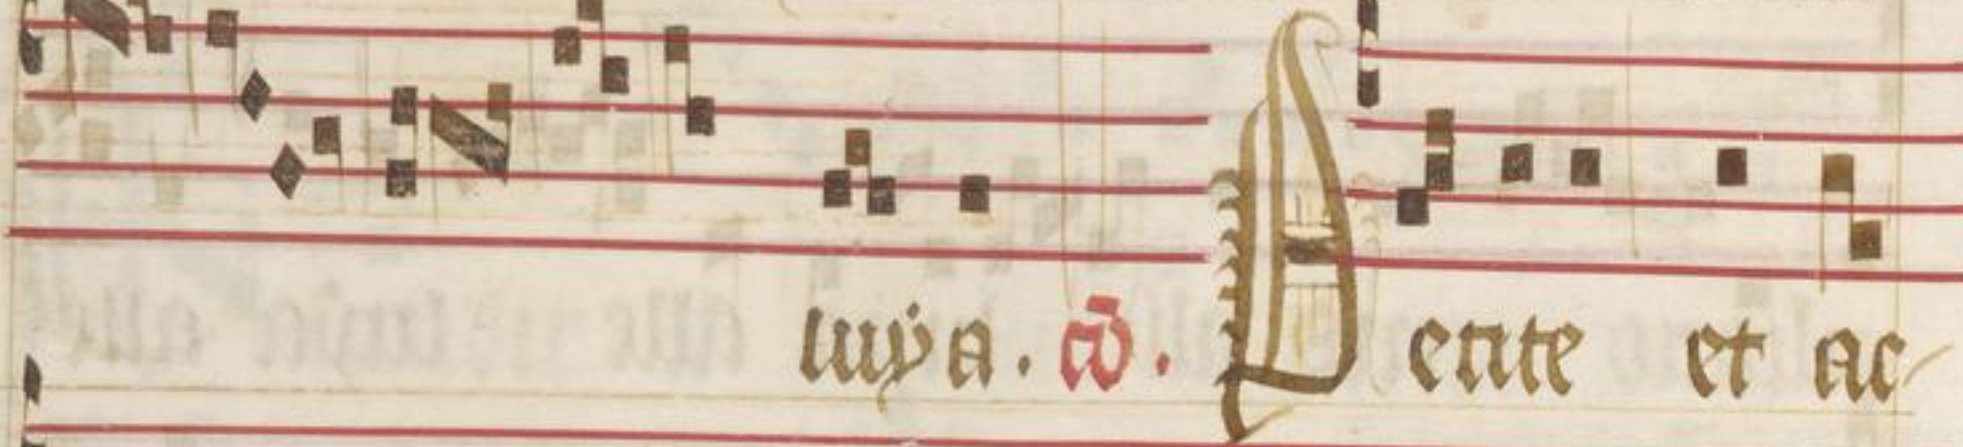 luya. co. Petite et ac-